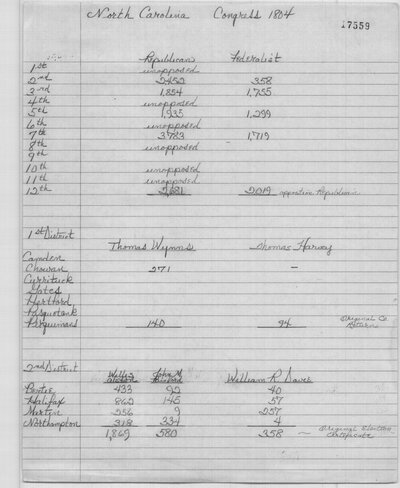 North Carolina Congress 1804
17559
Republican Federalist
1st unopposed
2nd 2,452 358
3rd 1,854 1,755
4th unopposed
5th 1,935 1,299
6th unopposed
7th 3,783 1,719
8th unopposed
9th
10th unopposed
11th unopposed
12th 2,681 2,019 opposition Republican
1st District
Thomas Wynns Thomas Harvey
Camden
Chowan 271 —
Currituck
Gates
Hertford
Pasquotank
Perquimans 140 94 Original Co. Return
2nd District
Willis Alston John M. Binford William R Davie
Bertie 433 92 40
Halifax 862 145 57
Martin 256 9 257
Northampton 318 334 4
1,869 580 358 — Original Election Certificate